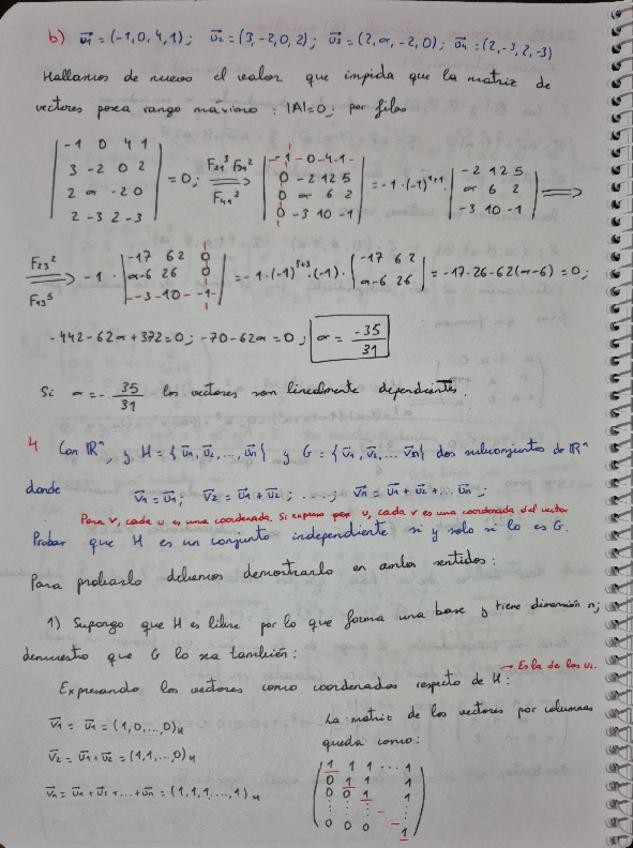 b) u1 = (-1,0,4,1); u2 = (3,-2,0,2); u3 = (2,α,-2,0); u4 = (2,-3,2,-3)
Hallamos de nuevo el valor que impida que la matriz de
vectores posea rango máximo: |A|=0; por filas
| -1 0 4 1 | = 0; F21^3 F31^2 ⟹ F41^2 | -1 0 4 1 | = -1·(-1)^1+1 · | -2 12 5 | ⟹
| 3 -2 0 2 | | 0 -2 12 5 | | α 6 2 |
| 2 α -2 0 | | 0 α 6 2 | | -3 10 -1 |
| 2 -3 2 -3 | | 0 -3 10 -1 |
F23^2 ⟹ F13^5 -1 · | -17 62 0 | = -1·(-1)^3+3·(-1)· | -17 62 | = -17·26-62(α-6) = 0;
| α-6 26 0 | | α-6 26 |
| -3 10 -1 |
-442-62α+372=0; -70-62α=0; α = -35/31
Si α = -35/31 los vectores son linealmente dependientes.
4 Con ℝⁿ, y H = {u1, u2, ..., un} y G = {v1, v2, ... vn} dos subconjuntos de ℝⁿ
donde v1 = u1; v2 = u1 + u2; ...; vn = u1 + u2 + ... un;
Para v, cada u es una coordenada. Si expreso por u, cada v es una coordenada del vector
Probar que H es un conjunto independiente si y solo si lo es G.
Para probarlo debemos demostrarlo en ambos sentidos:
1) Supongo que H es libre por lo que forma una base y tiene dimensión n;
demuestro que G lo sea también:
→ Es la de los ui.
Expresando los vectores como coordenadas respecto de H:
v1 = u1 = (1,0,...,0)H
v2 = u1+u2 = (1,1,...,0)H
vn = u1 + u2 + ... + un = (1,1,1,...,1)H
La matriz de los vectores por columnas
queda como:
( 1 1 1 ... 1 )
( 0 1 1 1 )
( 0 0 1 1 )
( ⋮ ⋮ ⋮ ⋮ )
( 0 0 0 1 )